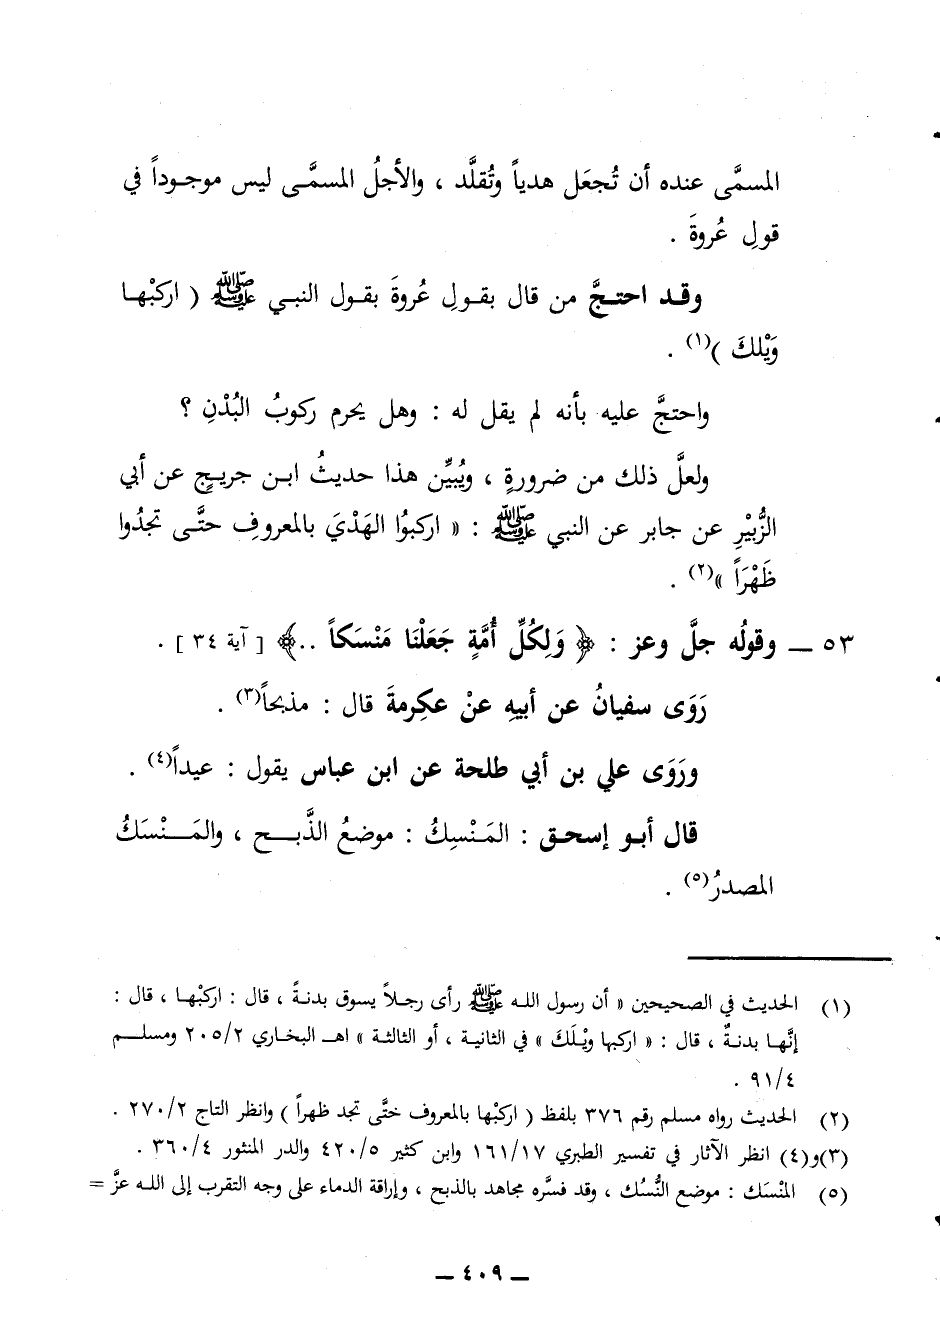 المسمَّى عنده أن تُجعَل هدياً وتُقلَّد ، والأجلُ المسمَّى ليس موجوداً في
قولِ عُروةَ .
وقد احتجَّ من قال بقولِ عُروةَ بقول النبي ﷺ ( اركبْها
وَيْلكَ )(١) .
واحتجَّ عليه بأنه لم يقل له : وهل يحرم ركوبُ البُدْنِ ؟
ولعلَّ ذلك من ضرورةٍ ، ويُبيِّن هذا حديثُ ابن جريجٍ عن أبي
الزُّبيْرِ عن جابر عن النبي ﷺ : « اركبوُا الهَدْيَ بالمعروفِ حتَّى تجدُوا
ظَهْرَاً »(٢) .
٥٣ ــ وقولُه جلَّ وعز : ﴿ وَلِكُلِّ أُمَّةٍ جَعَلْنَا مَنْسَكاً ..﴾ [ آية ٣٤ ] .
رَوَى سفيانُ عن أبيهِ عنْ عكِرمةَ قال : مذبحاً(٣) .
ورَوَى علي بن أبي طلحة عن ابن عباس يقول : عيداً(٤) .
قال أبو إسحق : المَنْسِكُ : موضعُ الذَّبح ، والمَنْسَكُ
المصدرُ(٥) .
(١) الحديث في الصحيحين « أن رسول الله ﷺ رأى رجلاً يسوق بدنةً ، قال : اركبْها ، قال :
إنَّها بدنةٌ ، قال : « اركبها ويْلَكَ » في الثانية ، أو الثالثة » اهـ البخاري ٢٠٥/٢ ومسلم
٩١/٤ .
(٢) الحديث رواه مسلم رقم ٣٧٦ بلفظ ( اركبْها بالمعروف حتَّى تجد ظهراً ) وانظر التاج ٢٧٠/٢ .
(٣)و(٤) انظر الآثار في تفسير الطبري ١٦١/١٧ وابن كثير ٤٢٠/٥ والدر المنثور ٣٦٠/٤ .
(٥) المنْسَك : موضع النُّسُك ، وقد فسَّره مجاهد بالذبح ، وإراقة الدماء على وجه التقرب إلى الله عزَّ =
ــ ٤٠٩ ــ